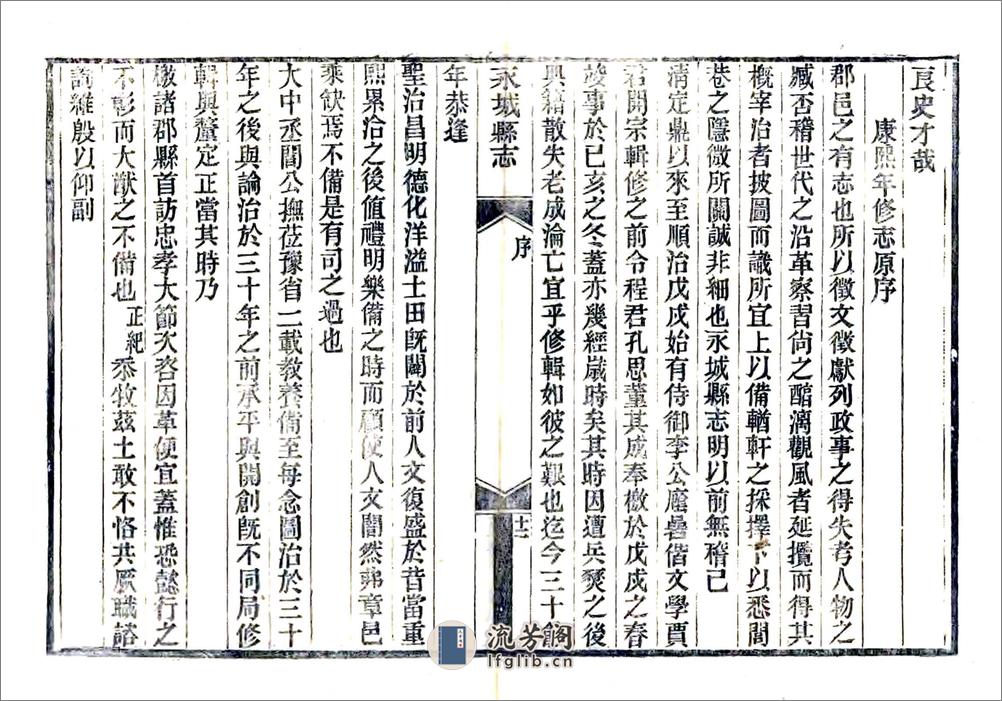 良史才哉
康熙年修志原序
郡邑之有志也所以徵文徵獻列政事之得失考人物之
臧否稽世代之沿革察習尚之醕漓觀風者延攬而得其
概宰治者披圖而識所宜上以備輶軒之採擇下以悉閭
巷之隱微所關誠非細也永城縣志明以前無稽已
清定鼎以來至順治戊戌始有侍御李公廕嵒偕文學賈
君開宗輯修之前令程君孔思董其成奉檄於戊戌之春
竣事於己亥之冬蓋亦幾經歲時矣其時因遭兵燹之後
典籍散失老成淪亡宜乎修輯如彼之艱也迄今三十餘
永城縣志
序
十二
年恭逢
聖治昌明德化洋溢土田既闢於前人文復盛於昔當重
熙累洽之後值禮明樂備之時而顧使人文闇然弗章邑
乘缺焉不備是有司之過也
大中丞閻公撫莅豫省二載教養備至每念圖治於三十
年之後與論治於三十年之前承平與開創既不同局修
輯與釐定正當其時乃
檄諸郡縣首訪忠孝大節次咨因革便宜蓋惟恐懿行之
不彰而大猷之不備也正紀忝牧茲土敢不恪共厥職諮
詢維殷以仰副
流芳阁
lfglib.cn